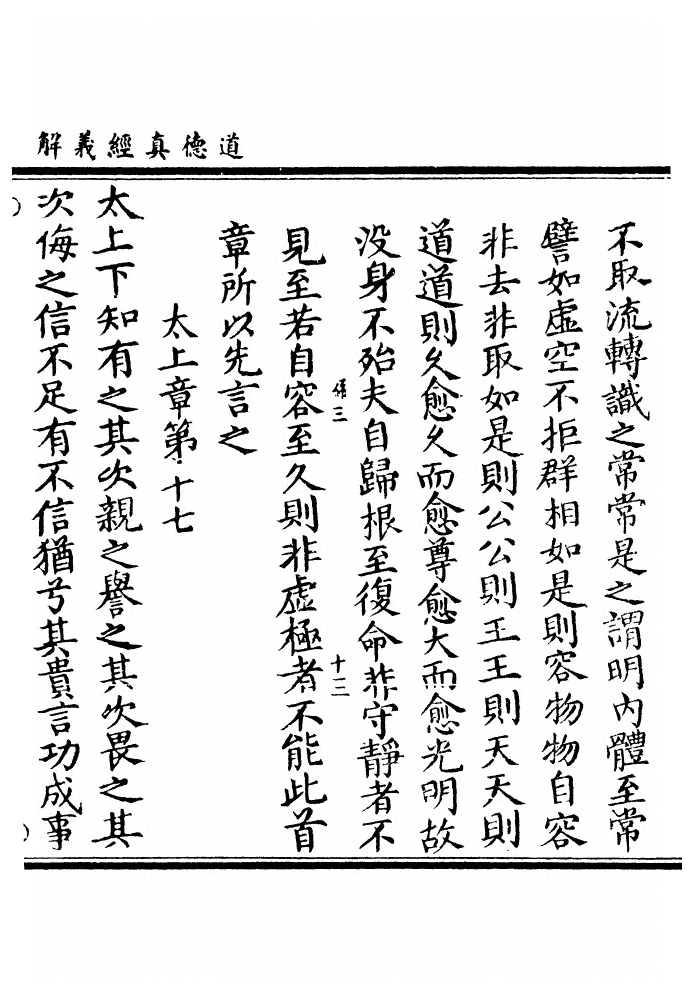 道德真經義解
不取流轉識之常常是之謂明内體至常
譬如虛空不拒群相如是則容物物自容
非去非取如是則公公則王王則天天則
道道則久愈久而愈尊愈大而愈光明故
没身不殆夫自歸根至復命非守靜者不
十三
見至若自容至久則非虛極者不能此首
章所以先言之
太上章第十七
太上下知有之其次親之譽之其次畏之其
次侮之信不足有不信猶兮其貴言功成事